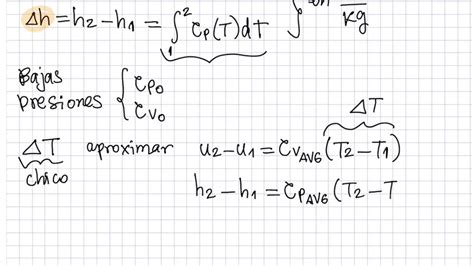 Δh = h2 − h1 = ∫₁² Cp(T)dT kg
Bajas
presiones { Cp₀
Cv₀
ΔT
ΔT aproximar u2 − u1 = Cv AVG (T2 − T1)
chico
h2 − h1 = Cp AVG (T2 − T